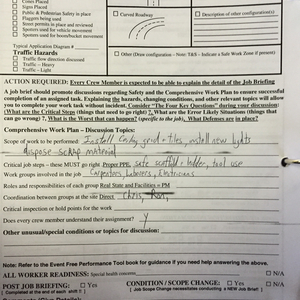 Cones Placed
Signs Placed
Public & Pedestrian Safety in place
Flaggers being used
Street permits in place and reviewed
Spotters used for vehicle movement
Spotters used for boom/bucket movement
Curved Roadway
Description of other configuration(s)
Typical Application Diagram #
Traffic Hazards
Traffic flow direction discussed
Traffic – Heavy
Traffic – Light
Other (Draw configuration - Note: T&S - Indicate a Safe Work Zone if present)
ACTION REQUIRED: Every Crew Member is expected to be able to explain the detail of the Job Briefing
A job brief should promote discussions regarding Safety and the Comprehensive Work Plan to ensure successful
completion of an assigned task. Explaining the hazards, changing conditions, and other relevant topics will allow
you to complete your work task without incident. Consider "The Four Key Questions" during your discussion:
(What are the Critical Steps (things that need to go right) ?, What are the Error Likely Situations (things that can
go wrong) ?, What is the Worst that can happen? (specific to the job), What Defenses are in place?)
Comprehensive Work Plan – Discussion Topics:
Scope of work to be performed: Install Ceiling grid + tiles, install new lights
- dispose scrap material
Critical job steps – these MUST go right Proper PPE, safe scaffold + ladder, tool use
Work groups involved in the job Carpenters, Laborers, Electricians
Roles and responsibilities of each group Real State and Facilities = PM
Coordination between groups at the site Direct Chris,
Critical inspection or hold points for the work
Does every crew member understand their assignment? Y
Other unusual/special conditions or topics for discussion:
Note: Refer to the Event Free Performance Tool book for guidance if you need help answering the above.
ALL WORKER READINESS: Special health concerns N/A
POST JOB BRIEFING: Yes CONDITION / SCOPE CHANGE: Yes N/A
( Completed at the end of each shift ) ( Job Scope Change necessitates conducting a NEW Job Brief )